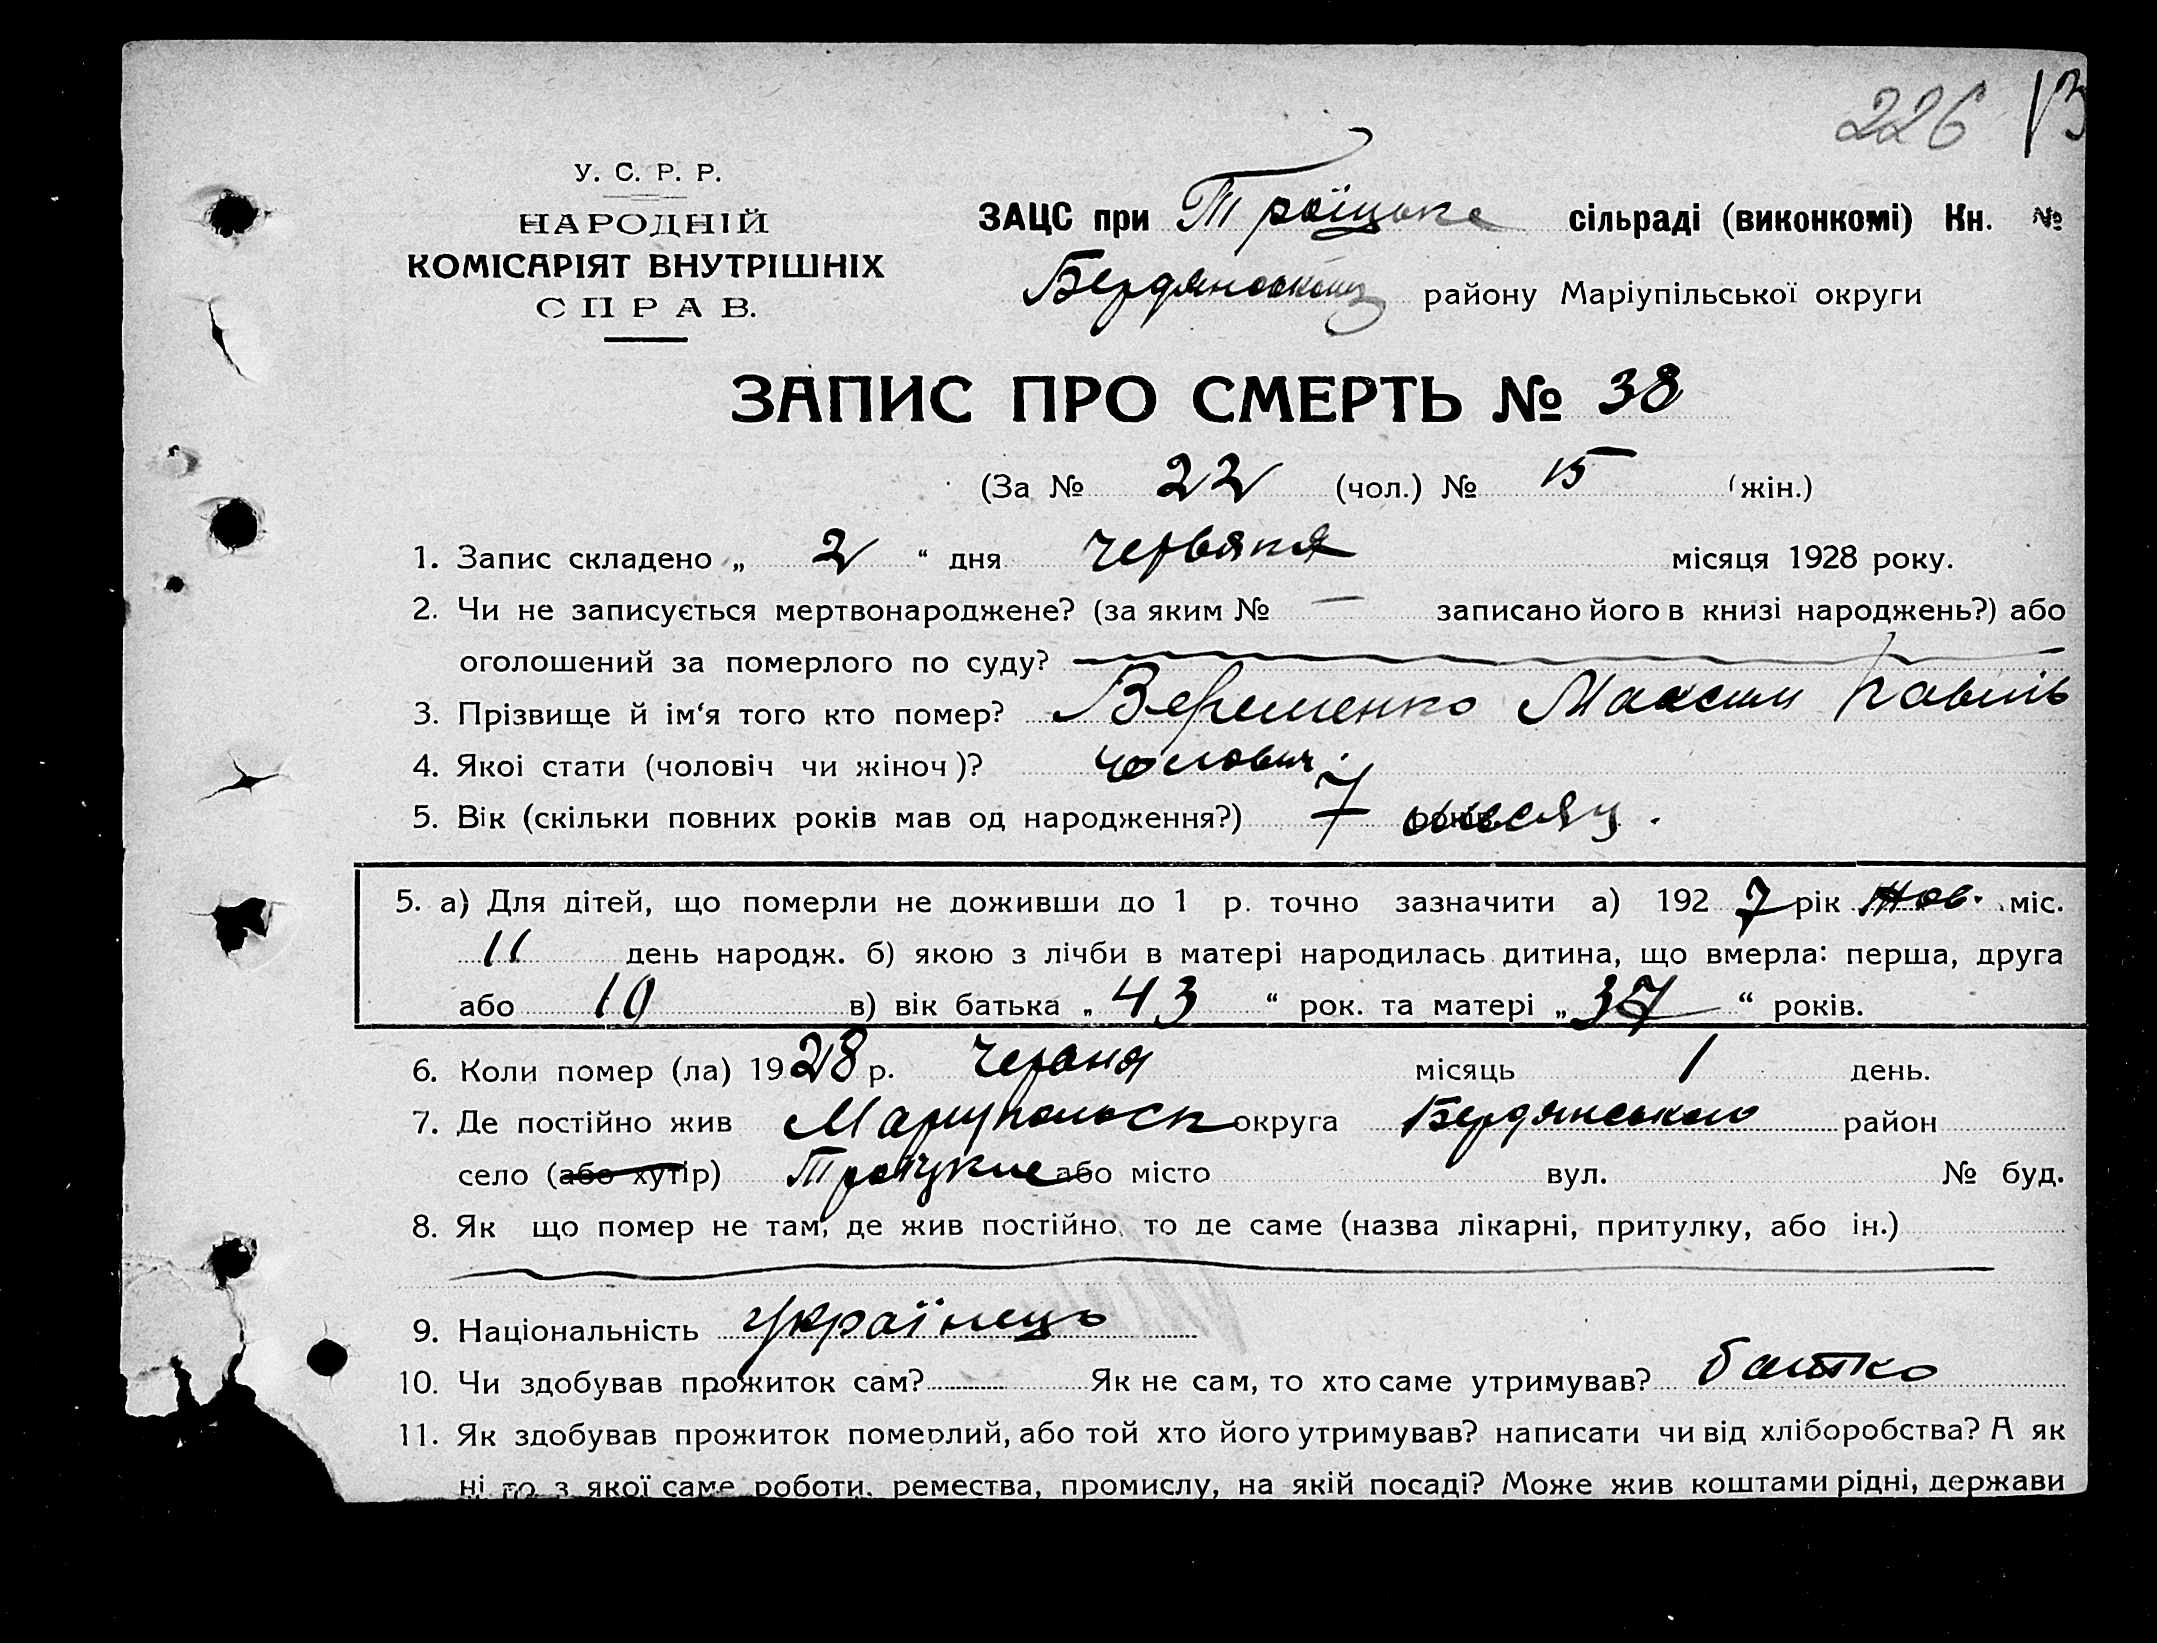 226
У. С. Р. Р.
НАРОДНІЙ
КОМІСАРІЯТ ВНУТРІШНІХ
СПРАВ.
ЗАЦС при Троїцьке сільраді (виконкомі) Кн. №
Бердянському району Маріупільської округи
ЗАПИС ПРО СМЕРТЬ № 38
(За № 22 (чол.) № 15 (жін.)
1. Запис складено „ 2 “ дня червяня місяця 1928 року.
2. Чи не записується мертвонароджене? (за яким № — записано його в книзі народжень?) або
оголошений за померлого по суду?
3. Прізвище й ім‘я того кто помер? Веременко Максим Павлів
4. Якоі стати (чоловіч чи жіноч)? чоловіч.
5. Вік (скільки повних років мав од народження?) 7 місяц.
5. а) Для дітей, що померли не доживши до 1 р. точно зазначити а) 1927 рік жов. міс.
11 день народж. б) якою з лічби в матері народилась дитина, що вмерла: перша, друга
або 10 в) вік батька „ 43 “ рок. та матері „ 37 “ років.
6. Коли помер (ла) 1928 р. червня місяць 1 день.
7. Де постійно жив Маріупольск округа Бердянського район
село (або хутір) Троїцкие або місто вул. № буд.
8. Як що помер не там, де жив постійно, то де саме (назва лікарні, притулку, або ін.)
9. Національність Українець
10. Чи здобував прожиток сам? Як не сам, то хто саме утримував? батко
11. Як здобував прожиток померлий, або той хто його утримував? написати чи від хліборобства? А як
ні то з якої саме роботи, ремества, промислу, на якій посаді? Може жив коштами рідні, держави